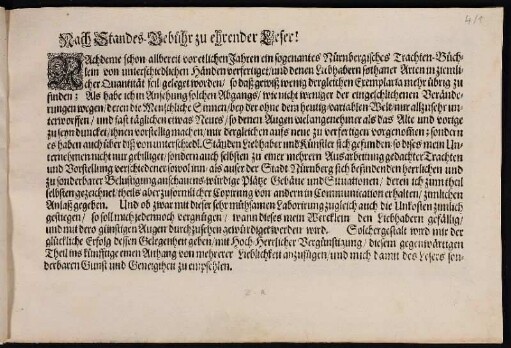 4/1
Nach Standes-Gebühr zu ehrender Leser!
NAchdeme schon allbereit vor etlichen Jahren ein sogenantes Nürnbergisches Trachten-Büch-
lein von unterschiedlichen Händen verfertiget/ und denen Liebhabern sothaner Arten in ziemli-
cher Quantität feil geleget worden/ so daß gewiß wenig dergleichen Exemplaria mehr übrig zu
finden: Als habe ich in Ansehung solchen Abgangs/ wie nicht weniger der eingeschlichenen Verände-
rungen wegen/ deren die Menschliche Sinnen/ bey der ohne dem heutig-variablen Welt/ nur allzusehr un-
terworffen/ und fast täglichen etwas Neues/ so denen Augen viel angenehmer als das Alte und vorige
zu seyn duncket/ ihnen vorstellig machen/ mir dergleichen aufs neue zu verfertigen vorgenommen: sondern
es haben auch über diß von unterschiedl. Ständen Liebhaber und Künstler sich gefunden/ so dises mein Un-
ternehmen nicht nur gebilliget/ sondern auch selbsten zu einer mehrern Ausarbeitung gedachter Trachten
und Vorstellung verschiedener sowol inn- als ausser der Stadt Nürnberg sich befindenden herrlichen und
zu sonderbarer Belustigung anschauens-würdige Plätze/ Gebäue und Situationen/ deren ich zum theil
selbsten gezeichnet/ theils aber zu förmlicher Copirung von andern in Communication erhalten/ zimlichen
Anlaß gegeben. Und ob zwar mit dieser sehr mühsamen Laborirung zugleich auch die Unkosten zimlich
gestiegen/ so soll mich jedennoch vergnügen/ wann dieses mein Wercklein den Liebhabern gefällig/
und mit dero günstigen Augen durchzusehen gewürdiget werden wird. Solchergestalt wird mir der
glückliche Erfolg dessen Gelegenheit geben/ mit Hoch-Herrlicher Vergünstigung/ diesem gegenwärtigen
Theil ins künfftige einen Anhang von mehrerer Lieblichkeit anzufügen/ und mich damit des Lesers son-
derbaren Gunst und Geneigtheit zu empfehlen.